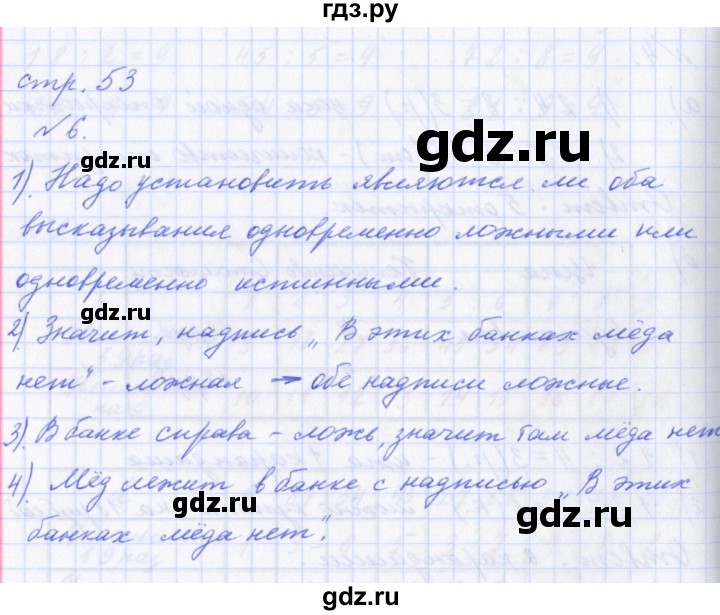 гдз.ру
стр. 53
№6.
1). Надо установить являются ли оба
высказывания одновременно ложными или
одновременно истинными.
2) Значит, надпись „В этих банках мёда
нет" - ложная → обе надписи ложные.
3). В банке справа - ложь, значит там мёда нет
4). Мёд лежит в банке с надписью „В этих
банках мёда нет".
gdz.ru
gdz.ru
gdz.ru
gdz.ru
gdz.ru
gdz.ru
gdz.ru
gdz.ru
gdz.ru